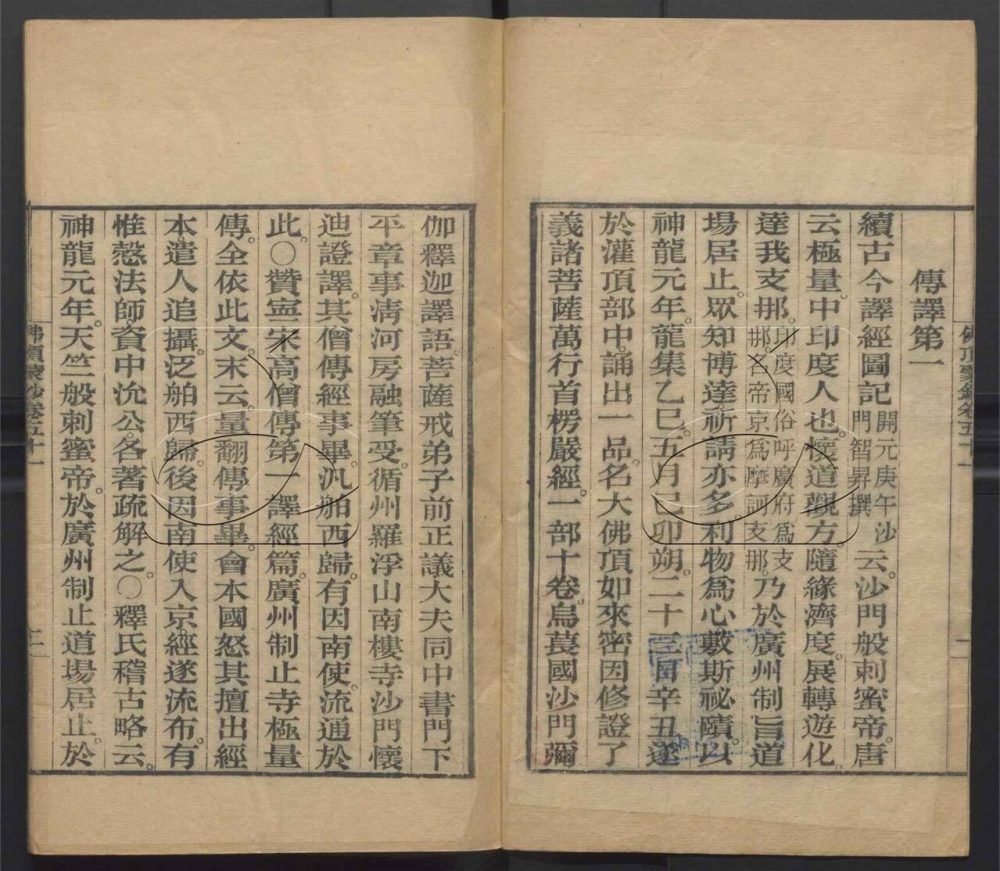 傳譯第一
續古今譯經圖記開元庚午沙門智昇撰云。沙門般剌蜜帝。唐
云極量。中印度人也。懷道觀方。隨緣濟度。展轉遊化。
達我支挪。印度國俗呼廣府爲支挪名帝京爲摩訶支挪乃於廣州制旨道
場居止。眾知博達。祈請亦多。利物爲心。敷斯祕賾。以
神龍元年。龍集乙巳。五月己卯朔。二十三日辛丑。遂
於灌頂部中。誦出一品。名大佛頂如來密因修證了
義諸菩薩萬行首楞嚴經。一部十卷。烏萇國沙門彌
伽釋迦譯語。菩薩戒弟子前正議大夫同中書門下
平章事清河房融筆受。循州羅浮山南樓寺沙門懷
迪證譯。其僧傳經事畢。汎舶西歸。有因南使。流通於
此。○贊寧宋高僧傳第一譯經篇。廣州制止寺極量
傳。全依此文。末云。量翻傳事畢。會本國怒其擅出經
本。遣人追攝。泛舶西歸。後因南使入京。經遂流布。有
惟慤法師。資中沇公。各著疏解之。○釋氏稽古略云。
神龍元年。天竺般剌蜜帝。於廣州制止道場居止。於
佛頂蒙鈔卷五十一